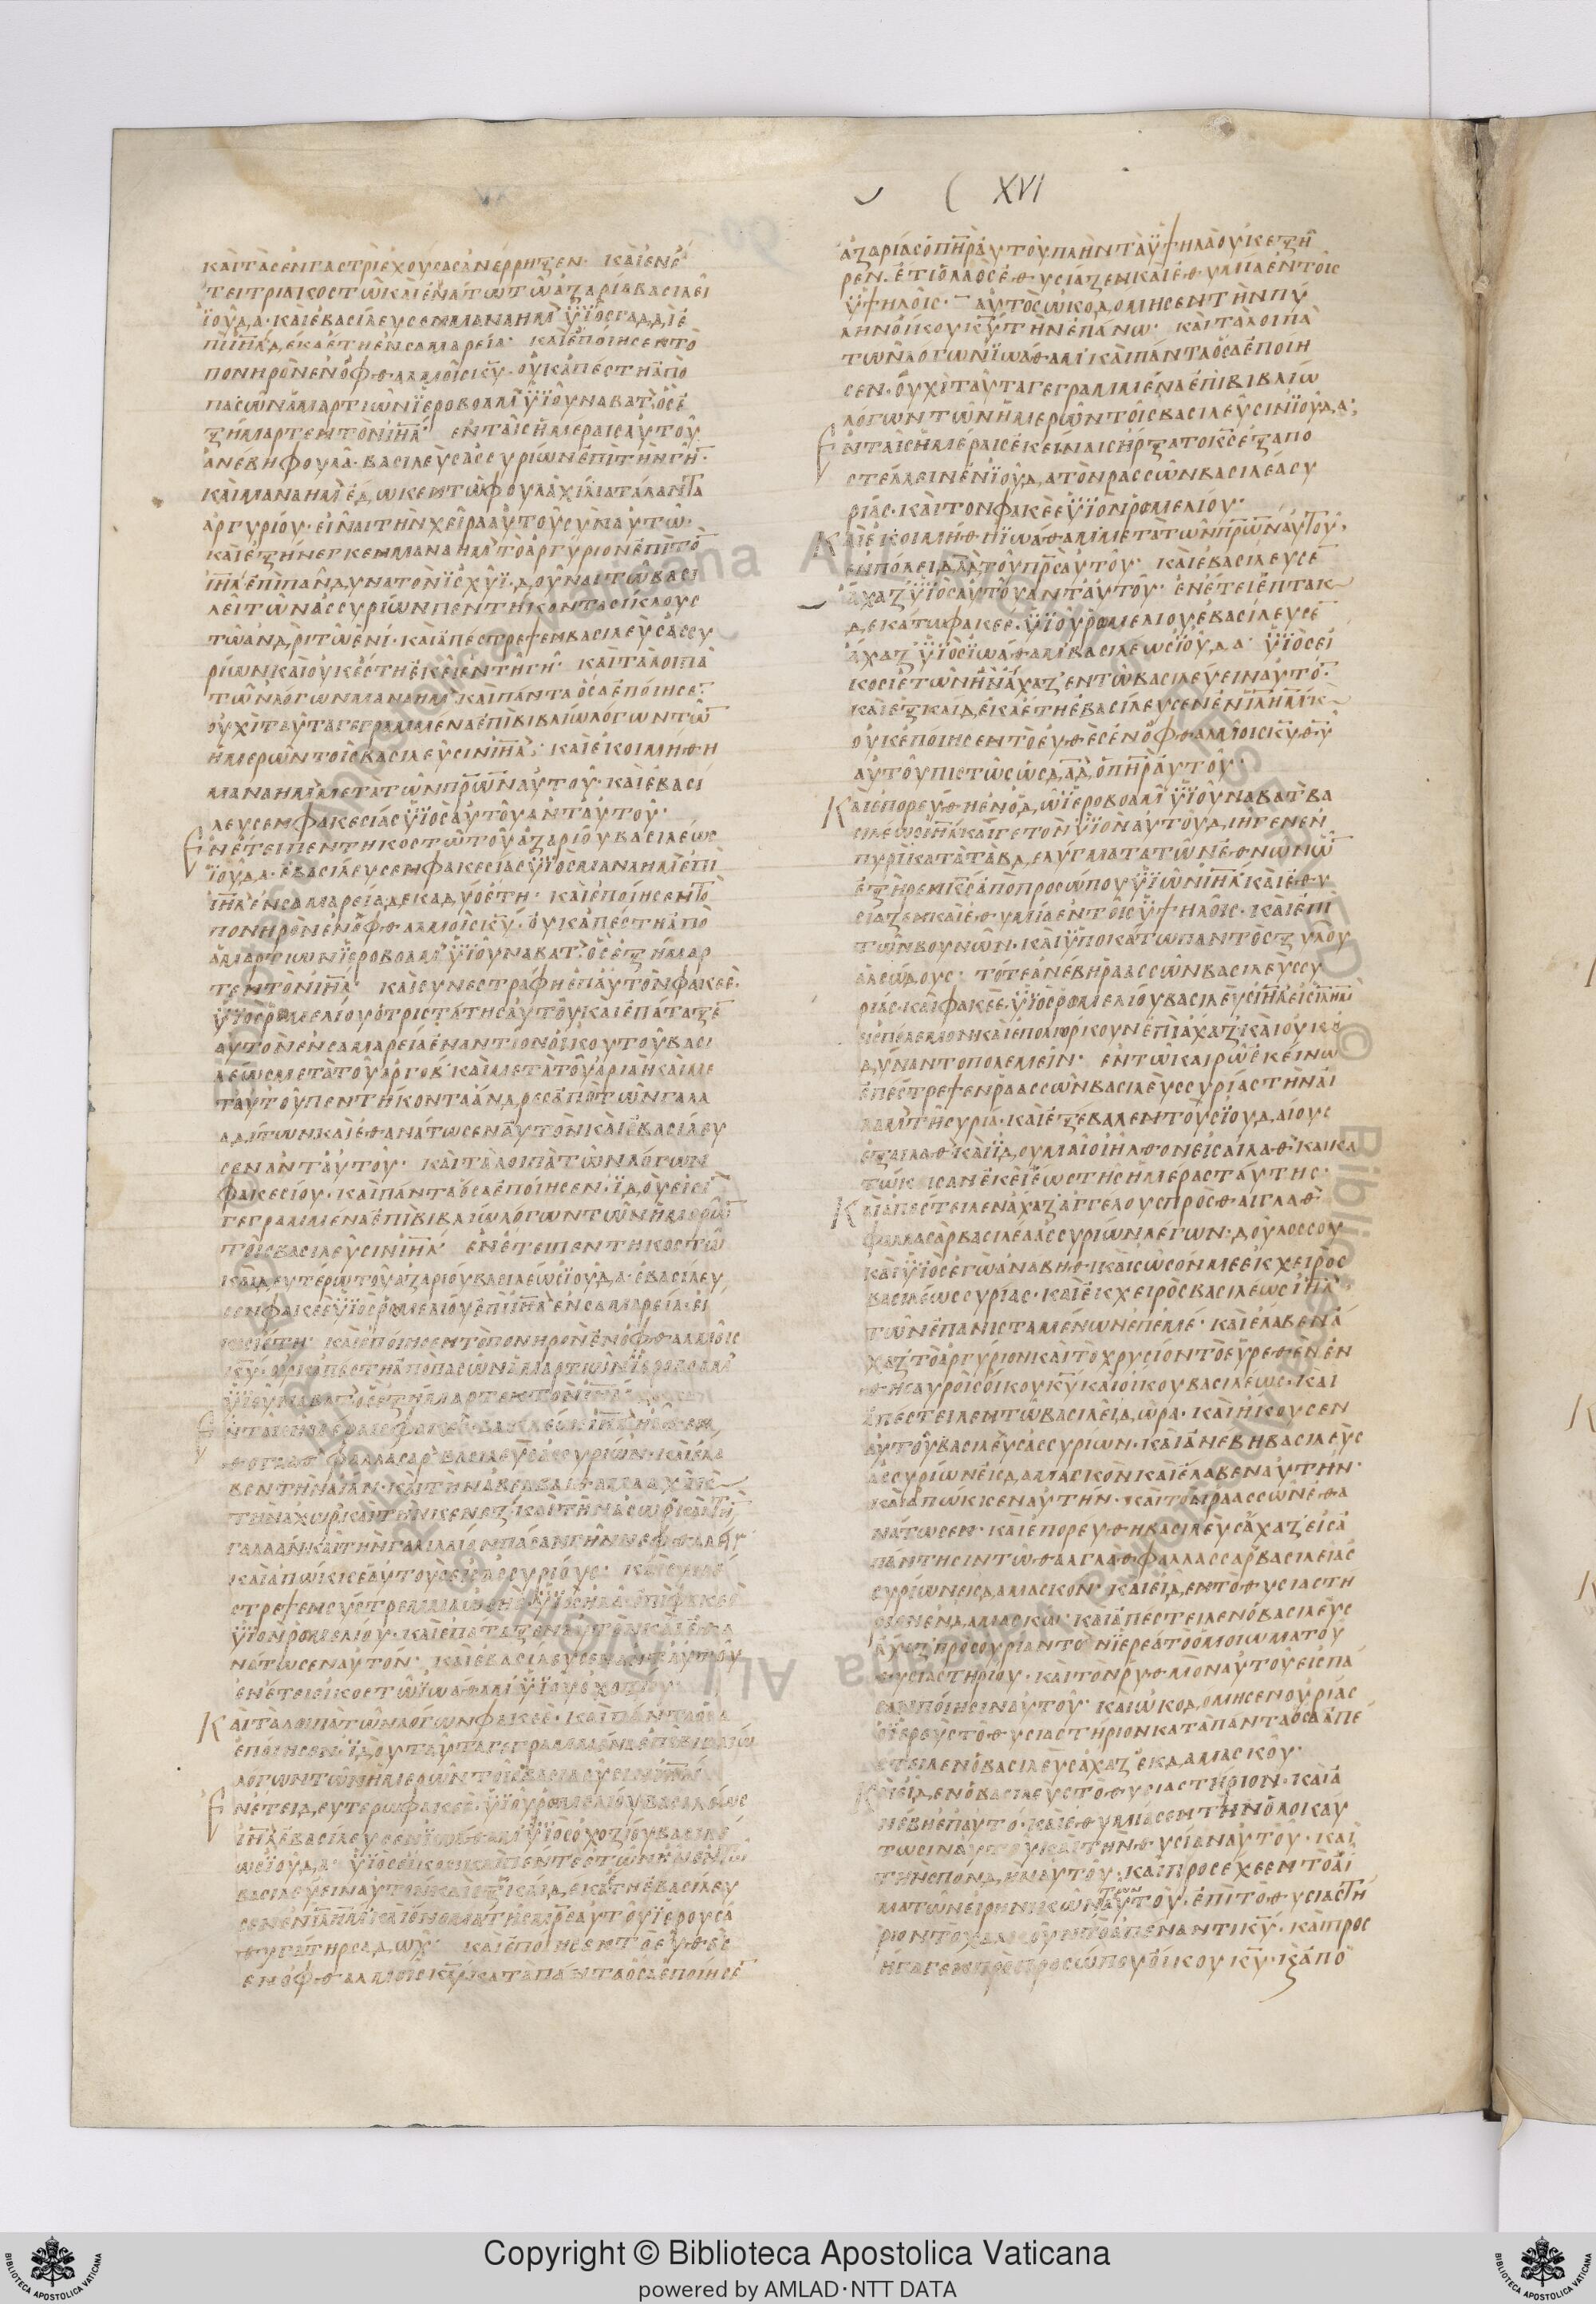 XVI
ΚΑΙΤΑΣΕΝΓΑΣΤΡΙΕΧΟΥΣΑΣΑΝΕΡΡΗΞΕΝ· ΚΑΙΕΝΕ
ΤΕΙΤΡΙΑΚΟΣΤΩΚΑΙΕΝΑΤΩΤΩΑΖΑΡΙΑΒΑΣΙΛΕΙ
ΪΟΥΔΑ· ΚΑΙΕΒΑΣΙΛΕΥΣΕΝΜΑΝΑΗΜΫΙΟΣΓΑΔΔΙΕ
ΠΙΙΗΛΔΕΚΑΕΤΗΕΝΣΑΜΑΡΕΙΑ· ΚΑΙΕΠΟΙΗΣΕΝΤΟ
ΠΟΝΗΡΟΝΕΝΟΦΘΑΛΜΟΙΣΚΥ· ΟΥΚΑΠΕΣΤΗΑΠΟ
ΠΑΣΩΝΑΜΑΡΤΙΩΝΪΕΡΟΒΟΑΜΫΙΟΥΝΑΒΑΤ· ΟΣΕ
ΞΗΜΑΡΤΕΝΤΟΝΙΗΛ· ΕΝΤΑΙΣΗΜΕΡΑΙΣΑΥΤΟΥ
ΑΝΕΒΗΦΟΥΛΑ· ΒΑΣΙΛΕΥΣΑΣΣΥΡΙΩΝΕΠΙΤΗΝΓΗ·
ΚΑΙΜΑΝΑΗΜΕΔΩΚΕΝΤΩΦΟΥΛΑΧΙΛΙΑΤΑΛΑΝΤΑ
ΑΡΓΥΡΙΟΥ· ΕΙΝΑΙΤΗΝΧΕΙΡΑΑΥΤΟΥΣΥΝΑΥΤΩ·
ΚΑΙΕΞΗΝΕΓΚΕΝΜΑΝΑΗΜΤΟΑΡΓΥΡΙΟΝΕΠΙΤΟ
ΙΗΛΕΠΙΠΑΝΔΥΝΑΤΟΝΪΣΧΥΪ· ΔΟΥΝΑΙΤΩΒΑΣΙ
ΛΕΙΤΩΝΑΣΣΥΡΙΩΝΠΕΝΤΗΚΟΝΤΑΣΙΚΛΟΥΣ
ΤΩΑΝΔΡΙΤΩΕΝΙ· ΚΑΙΑΠΕΣΤΡΕΨΕΝΒΑΣΙΛΕΥΣΑΣΣΥ
ΡΙΩΝΚΑΙΟΥΚΕΣΤΗΕΚΕΙΕΝΤΗΓΗ· ΚΑΙΤΑΛΟΙΠΑ
ΤΩΝΛΟΓΩΝΜΑΝΑΗΜ· ΚΑΙΠΑΝΤΑΟΣΑΕΠΟΙΗΣΕ·
ΟΥΧΙΤΑΥΤΑΓΕΓΡΑΜΜΕΝΑΕΠΙΒΙΒΛΙΩΛΟΓΩΝΤΩ
ΗΜΕΡΩΝΤΟΙΣΒΑΣΙΛΕΥΣΙΝΙΗΛ· ΚΑΙΕΚΟΙΜΗΘΗ
ΜΑΝΑΗΜΜΕΤΑΤΩΝΠΡΩΝΑΥΤΟΥ· ΚΑΙΕΒΑΣΙ
ΛΕΥΣΕΝΦΑΚΕΣΙΑΣΫΙΟΣΑΥΤΟΥΑΝΤΑΥΤΟΥ·
ΕΝΕΤΕΙΠΕΝΤΗΚΟΣΤΩΤΟΥΑΖΑΡΙΟΥΒΑΣΙΛΕΩΣ
ΪΟΥΔΑ· ΕΒΑΣΙΛΕΥΣΕΝΦΑΚΕΣΙΑΣΫΙΟΣΜΑΝΑΗΜΕΠΙ
ΙΗΛΕΝΣΑΜΑΡΕΙΑΔΕΚΑΔΥΟΕΤΗ· ΚΑΙΕΠΟΙΗΣΕΝΤΟ
ΠΟΝΗΡΟΝΕΝΟΦΘΑΛΜΟΙΣΚΥ· ΟΥΚΑΠΕΣΤΗΑΠΟ
ΑΜΑΡΤΙΩΝΪΕΡΟΒΟΑΜΫΙΟΥΝΑΒΑΤ· ΟΣΕΞΗΜΑΡ
ΤΕΝΤΟΝΙΗΛ· ΚΑΙΣΥΝΕΣΤΡΑΦΗΕΠΑΥΤΟΝΦΑΚΕΕ·
ΫΙΟΣΡΟΜΕΛΙΟΥΟΤΡΙΣΤΑΤΗΣΑΥΤΟΥΚΑΙΕΠΑΤΑΞΕ
ΑΥΤΟΝΕΝΣΑΜΑΡΕΙΑΕΝΑΝΤΙΟΝΟΙΚΟΥΤΟΥΒΑΣΙ
ΛΕΩΣΜΕΤΑΤΟΥΑΡΓΟΒ· ΚΑΙΜΕΤΑΤΟΥΑΡΙΑΗΚΑΙΜΕ
ΤΑΥΤΟΥΠΕΝΤΗΚΟΝΤΑΑΝΔΡΕΣΑΠΟΤΩΝΓΑΛΑ
ΑΔΙΤΩΝΚΑΙΕΘΑΝΑΤΩΣΕΝΑΥΤΟΝΚΑΙΕΒΑΣΙΛΕΥ
ΣΕΝΑΝΤΑΥΤΟΥ· ΚΑΙΤΑΛΟΙΠΑΤΩΝΛΟΓΩΝ
ΦΑΚΕΣΙΟΥ· ΚΑΙΠΑΝΤΑΟΣΑΕΠΟΙΗΣΕΝ· ΪΔΟΥΕΙΣΙ
ΓΕΓΡΑΜΜΕΝΑΕΠΙΒΙΒΛΙΩΛΟΓΩΝΤΩΝΗΜΕΡΩ
ΤΟΙΣΒΑΣΙΛΕΥΣΙΝΙΗΛ· ΕΝΕΤΕΙΠΕΝΤΗΚΟΣΤΩ
ΚΑΙΔΕΥΤΕΡΩΤΟΥΑΖΑΡΙΟΥΒΑΣΙΛΕΩΣΪΟΥΔΑ· ΕΒΑΣΙΛΕΥ
ΣΕΝΦΑΚΕΕΫΙΟΣΡΟΜΕΛΙΟΥΕΠΙΙΗΛΕΝΣΑΜΑΡΕΙΑ· ΕΙ
ΚΟΣΙΕΤΗ· ΚΑΙΕΠΟΙΗΣΕΝΤΟΠΟΝΗΡΟΝΕΝΟΦΘΑΛΜΟΙΣ
ΚΥ· ΟΥΚΑΠΕΣΤΗΑΠΟΠΑΣΩΝΑΜΑΡΤΙΩΝΪΕΡΟΒΟΑΜ
ΫΙΟΥΝΑΒΑΤΟΣΕΞΗΜΑΡΤΕΝΤΟΝΙΗΛ·
ΕΝΤΑΙΣΗΜΕΡΑΙΣΦΑΚΕΕΒΑΣΙΛΕΩΣΙΗΛΗΛΘΕΝ
ΦΑΛΛΑΣΑΡΒΑΣΙΛΕΥΣΑΣΣΥΡΙΩΝ· ΚΑΙΕΛΑ
ΒΕΝΤΗΝΑΙΝ·
ΤΗΝΑΧΩΚΑΙΤΗΝΚΕΝΕΖ· ΚΑΙΤΗΝΑΣΩΡΚΑΙΤΗ
ΓΑΛΑΑΝΚΑΙΤΗΝΓΑΛΙΛΑΙΑΝΠΑΣΑΝΓΗΝΝΕΦΘΑΛΕΙ·
ΚΑΙΑΠΩΚΙΣΕΑΥΤΟΥΣΕΙΣΑΣΣΥΡΙΟΥΣ· ΚΑΙΣΥΝΕ
ΣΤΡΕΨΕΝΣΥΣΤΡΕΜΜΑΩΣΗΕΫΙΟΣΗΛΑ· ΕΠΙΦΑΚΕΕ
ΫΙΟΝΡΟΜΕΛΙΟΥ· ΚΑΙΕΠΑΤΑΞΕΝΑΥΤΟΝΚΑΙΕΘΑ
ΝΑΤΩΣΕΝΑΥΤΟΝ· ΚΑΙΕΒΑΣΙΛΕΥΣΕΝΑΝΤΑΥΤΟΥ
ΕΝΕΤΕΙΕΙΚΟΣΤΩΪΩΑΘΑΜΫΙΟΥΟΧΟΖΙΟΥ·
ΚΑΙΤΑΛΟΙΠΑΤΩΝΛΟΓΩΝΦΑΚΕΕ· ΚΑΙΠΑΝΤΑΟΣΑ
ΕΠΟΙΗΣΕΝ· ΪΔΟΥΤΑΥΤΑΓΕΓΡΑΜΜΕΝΑΕΠΙΒΙΒΛΙΩ
ΛΟΓΩΝΤΩΝΗΜΕΡΩΝΤΟΙΣΒΑΣΙΛΕΥΣΙΝΙΗΛ·
ΕΝΕΤΕΙΔΕΥΤΕΡΩΦΑΚΕΕ· ΫΙΟΥΡΟΜΕΛΙΟΥΒΑΣΙΛΕΩΣ
ΙΗΛΕΒΑΣΙΛΕΥΣΕΝΪΩΑΘΑΜΫΙΟΣΟΧΟΖΙΟΥΒΑΣΙΛΕ
ΩΣΪΟΥΔΑ· ΫΙΟΣΕΙΚΟΣΙΚΑΙΠΕΝΤΕΕΤΩΝΗΝΕΝΤΩ
ΒΑΣΙΛΕΥΕΙΝΑΥΤΟΝΚΑΙΕΞΚΑΙΔΕΚΑΕΤΗΕΒΑΣΙΛΕΥ
ΣΕΝΕΝΙΛΗΜΚΑΙΟΝΟΜΑΤΗΣΜΡΣΑΥΤΟΥΪΕΡΟΥΣΑ
ΘΥΓΑΤΗΡΣΑΔΩΧ· ΚΑΙΕΠΟΙΗΣΕΝΤΟΕΥΘΕΣ
ΕΝΟΦΘΑΛΜΟΙΣΚΥΚΑΤΑΠΑΝΤΑΟΣΑΕΠΟΙΗΣΕ
ΑΖΑΡΙΑΣΟΠΗΡΑΥΤΟΥΠΛΗΝΤΑΫΨΗΛΑΟΥΚΕΞΗ
ΡΕΝ· ΕΤΙΟΛΑΟΣΕΘΥΣΙΑΖΕΝΚΑΙΕΘΥΜΙΑΕΝΤΟΙΣ
ΫΨΗΛΟΙΣ· ΑΥΤΟΣΩΚΟΔΟΜΗΣΕΝΤΗΝΠΥ
ΛΗΝΟΙΚΟΥΚΥΤΗΝΕΠΑΝΩ· ΚΑΙΤΑΛΟΙΠΑ
ΤΩΝΛΟΓΩΝΪΩΑΘΑΜΚΑΙΠΑΝΤΑΟΣΑΕΠΟΙΗ
ΣΕΝ· ΟΥΧΙΤΑΥΤΑΓΕΓΡΑΜΜΕΝΑΕΠΙΒΙΒΛΙΩ
ΛΟΓΩΝΤΩΝΗΜΕΡΩΝΤΟΙΣΒΑΣΙΛΕΥΣΙΝΪΟΥΔΑ·
ΕΝΤΑΙΣΗΜΕΡΑΙΣΕΚΕΙΝΑΙΣΗΡΞΑΤΟΚΣΕΞΑΠΟ
ΣΤΕΛΛΕΙΝΕΝΪΟΥΔΑΤΟΝΡΑΣΣΩΝΒΑΣΙΛΕΑΣΥ
ΡΙΑΣ· ΚΑΙΤΟΝΦΑΚΕΕΫΙΟΝΡΟΜΕΛΙΟΥ·
ΚΑΙΕΚΟΙΜΗΘΗΪΩΑΘΑΜΜΕΤΑΤΩΝΠΡΩΝΑΥΤΟΥ·
ΕΝΠΟΛΕΙΔΑΔΤΟΥΠΡΣΑΥΤΟΥ· ΚΑΙΕΒΑΣΙΛΕΥΣΕ
ΑΧΑΖΫΙΟΣΑΥΤΟΥΑΝΤΑΥΤΟΥ· ΕΝΕΤΕΙΕΠΤΑΚ
ΔΕΚΑΤΩΦΑΚΕΕ· ΫΙΟΥΡΟΜΕΛΙΟΥΕΒΑΣΙΛΕΥΣΕ
ΑΧΑΖΫΙΟΣΪΩΑΘΑΜΒΑΣΙΛΕΩΣΪΟΥΔΑ· ΫΙΟΣΕΙ
ΚΟΣΙΕΤΩΝΗΝΑΧΑΖΕΝΤΩΒΑΣΙΛΕΥΕΙΝΑΥΤΟ·
ΚΑΙΕΞΚΑΙΔΕΚΑΕΤΗΕΒΑΣΙΛΕΥΣΕΝΕΝΙΛΗΜΚ
ΟΥΚΕΠΟΙΗΣΕΝΤΟΕΥΘΕΣΕΝΟΦΘΑΛΜΟΙΣΚΥΘΥ
ΑΥΤΟΥΠΙΣΤΩΣΩΣΔΑΔΟΠΗΡΑΥΤΟΥ·
ΚΑΙΕΠΟΡΕΥΘΗΕΝΟΔΩΪΕΡΟΒΟΑΜΫΙΟΥΝΑΒΑΤΒΑ
ΣΙΛΕΩΣΙΗΛΚΑΙΓΕΤΟΝΫΙΟΝΑΥΤΟΥΔΙΗΓΕΝΕΝ
ΠΥΡΙΚΑΤΑΤΑΒΔΕΛΥΓΜΑΤΑΤΩΝΕΘΝΩΝΩ
ΕΞΗΡΕΝΚΣΑΠΟΠΡΟΣΩΠΟΥΫΙΩΝΙΗΛΚΑΙΕΘΥ
ΣΙΑΖΕΝΚΑΙΕΘΥΜΙΑΕΝΤΟΙΣΫΨΗΛΟΙΣ· ΚΑΙΕΠΙ
ΤΩΝΒΟΥΝΩΝ· ΚΑΙΫΠΟΚΑΤΩΠΑΝΤΟΣΞΥΛΟΥ
ΑΛΣΩΔΟΥΣ· ΤΟΤΕΑΝΕΒΗΡΑΑΣΣΩΝΒΑΣΙΛΕΥΣΣΥ
ΡΙΑΣ· ΚΑΙΦΑΚΕΕ· ΫΙΟΣΡΟΜΕΛΙΟΥΒΑΣΙΛΕΥΣΙΗΛΕΙΣΙΛΗΜ
ΕΙΣΠΟΛΕΜΟΝΚΑΙΕΠΟΛΙΟΡΚΟΥΝΕΠΙΑΧΑΖ· ΚΑΙΟΥΚΕ
ΔΥΝΑΝΤΟΠΟΛΕΜΕΙΝ· ΕΝΤΩΚΑΙΡΩΕΚΕΙΝΩ
ΕΠΕΣΤΡΕΨΕΝΡΑΑΣΣΩΝΒΑΣΙΛΕΥΣΣΥΡΙΑΣΤΗΝΑΙ
ΛΑΜΤΗΣΥΡΙΑ· ΚΑΙΕΞΕΒΑΛΕΝΤΟΥΣΪΟΥΔΑΙΟΥΣ
ΕΞΑΙΛΑΘ· ΚΑΙΪΔΟΥΜΑΙΟΙΗΛΘΟΝΕΙΣΑΙΛΑΘ· ΚΑΙΚΑ
ΤΩΚΙΣΑΝΕΚΕΙΕΩΣΤΗΣΗΜΕΡΑΣΤΑΥΤΗΣ·
ΚΑΙΑΠΕΣΤΕΙΛΕΝΑΧΑΖΑΓΓΕΛΟΥΣΠΡΟΣΘΑΙΓΛΑΘ
ΦΑΛΛΑΣΑΡΒΑΣΙΛΕΑΑΣΣΥΡΙΩΝΛΕΓΩΝ· ΔΟΥΛΟΣΣΟΥ
ΚΑΙΫΙΟΣΕΓΩΑΝΑΒΗΘΙΚΑΙΣΩΣΟΝΜΕΕΚΧΕΙΡΟΣ
ΒΑΣΙΛΕΩΣΣΥΡΙΑΣ· ΚΑΙΕΚΧΕΙΡΟΣΒΑΣΙΛΕΩΣΙΗΛ
ΤΩΝΕΠΑΝΙΣΤΑΜΕΝΩΝΕΠΕΜΕ· ΚΑΙΕΛΑΒΕΝΑ
ΧΑΖΤΟΑΡΓΥΡΙΟΝΚΑΙΤΟΧΡΥΣΙΟΝΤΟΕΥΡΕΘΕΝΕΝ
ΘΗΣΑΥΡΟΙΣΟΙΚΟΥΚΥΚΑΙΟΙΚΟΥΒΑΣΙΛΕΩΣ· ΚΑΙ
ΑΠΕΣΤΕΙΛΕΝΤΩΒΑΣΙΛΕΙΔΩΡΑ· ΚΑΙΗΚΟΥΣΕΝ
ΑΥΤΟΥΒΑΣΙΛΕΥΣΑΣΣΥΡΙΩΝ· ΚΑΙΑΝΕΒΗΒΑΣΙΛΕΥΣ
ΑΣΣΥΡΙΩΝΕΙΣΔΑΜΑΣΚΟΝΚΑΙΕΛΑΒΕΝΑΥΤΗΝ·
ΚΑΙΑΠΩΚΙΣΕΝΑΥΤΗΝ· ΚΑΙΤΟΝΡΑΑΣΣΩΝΕΘΑ
ΝΑΤΩΣΕΝ· ΚΑΙΕΠΟΡΕΥΘΗΒΑΣΙΛΕΥΣΑΧΑΖΕΙΣΑ
ΠΑΝΤΗΣΙΝΤΩΘΑΛΓΛΑΘΦΑΛΛΑΣΣΑΡΒΑΣΙΛΕΙΑΣ
ΣΥΡΙΩΝΕΙΣΔΑΜΑΣΚΟΝ· ΚΑΙΕΙΔΕΝΤΟΘΥΣΙΑΣΤΗ
ΡΙΟΝΕΝΔΑΜΑΣΚΩ· ΚΑΙΑΠΕΣΤΕΙΛΕΝΟΒΑΣΙΛΕΥΣ
ΑΧΑΖΠΡΟΣΟΥΡΙΑΝΤΟΝΪΕΡΕΑΤΟΟΜΟΙΩΜΑΤΟΥ
ΘΥΣΙΑΣΤΗΡΙΟΥ· ΚΑΙΤΟΝΡΥΘΜΟΝΑΥΤΟΥΕΙΣΠΑ
ΣΑΝΠΟΙΗΣΙΝΑΥΤΟΥ· ΚΑΙΩΚΟΔΟΜΗΣΕΝΟΥΡΙΑΣ
ΟΪΕΡΕΥΣΤΟΘΥΣΙΑΣΤΗΡΙΟΝΚΑΤΑΠΑΝΤΑΟΣΑΑΠΕ
ΣΤΕΙΛΕΝΟΒΑΣΙΛΕΥΣΑΧΑΖΕΚΔΑΜΑΣΚΟΥ·
ΚΑΙΕΙΔΕΝΟΒΑΣΙΛΕΥΣΤΟΘΥΣΙΑΣΤΗΡΙΟΝ· ΚΑΙΑ
ΝΕΒΗΕΠΑΥΤΟ· ΚΑΙΕΘΥΜΙΑΣΕΝΤΗΝΟΛΟΚΑΥ
ΤΩΣΙΝΑΥΤΟΥΚΑΙΤΗΝΘΥΣΙΑΝΑΥΤΟΥ· ΚΑΙ
ΤΗΝΣΠΟΝΔΗΝΑΥΤΟΥ· ΚΑΙΠΡΟΣΕΧΕΕΝΤΟΑΙ
ΜΑΤΩΝΕΙΡΗΝΙΚΩΝΤΩΝΑΥΤΟΥ· ΕΠΙΤΟΘΥΣΙΑΣΤΗ
ΡΙΟΝΤΟΧΑΛΚΟΥΝΤΟΑΠΕΝΑΝΤΙΚΥ· ΚΑΙΠΡΟΣ
ΗΓΑΓΕΝΠΡΟΣΩΠΟΥΟΙΚΟΥΚΥ· ϏΑΠΟ
Copyright © Biblioteca Apostolica Vaticana
powered by AMLAD·NTT DATA